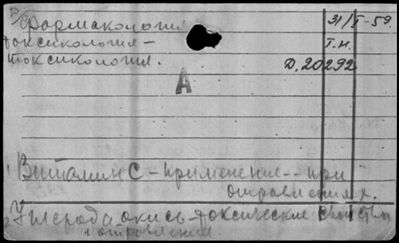 Фармакология
токсикология –
токсикология.
31/I-59
Т.Н.
Д.20292
А
1 Витамин С – применение – при
отравлениях.
2 Углерода окись – токсические свойства
и отравления.